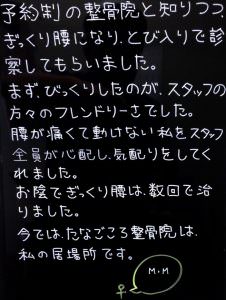 予約制の整骨院と知りつつ、
ぎっくり腰になり、とび入りで診
察してもらいました。
まず、びっくりしたのが、スタッフの
方々のフレンドリーさでした。
腰が痛くて動けない私をスタッフ
全員が心配し、気配りをしてく
れました。
お陰でぎっくり腰は、数回で治
りました。
今では、たなごころ整骨院は、
私の居場所です。
M.M